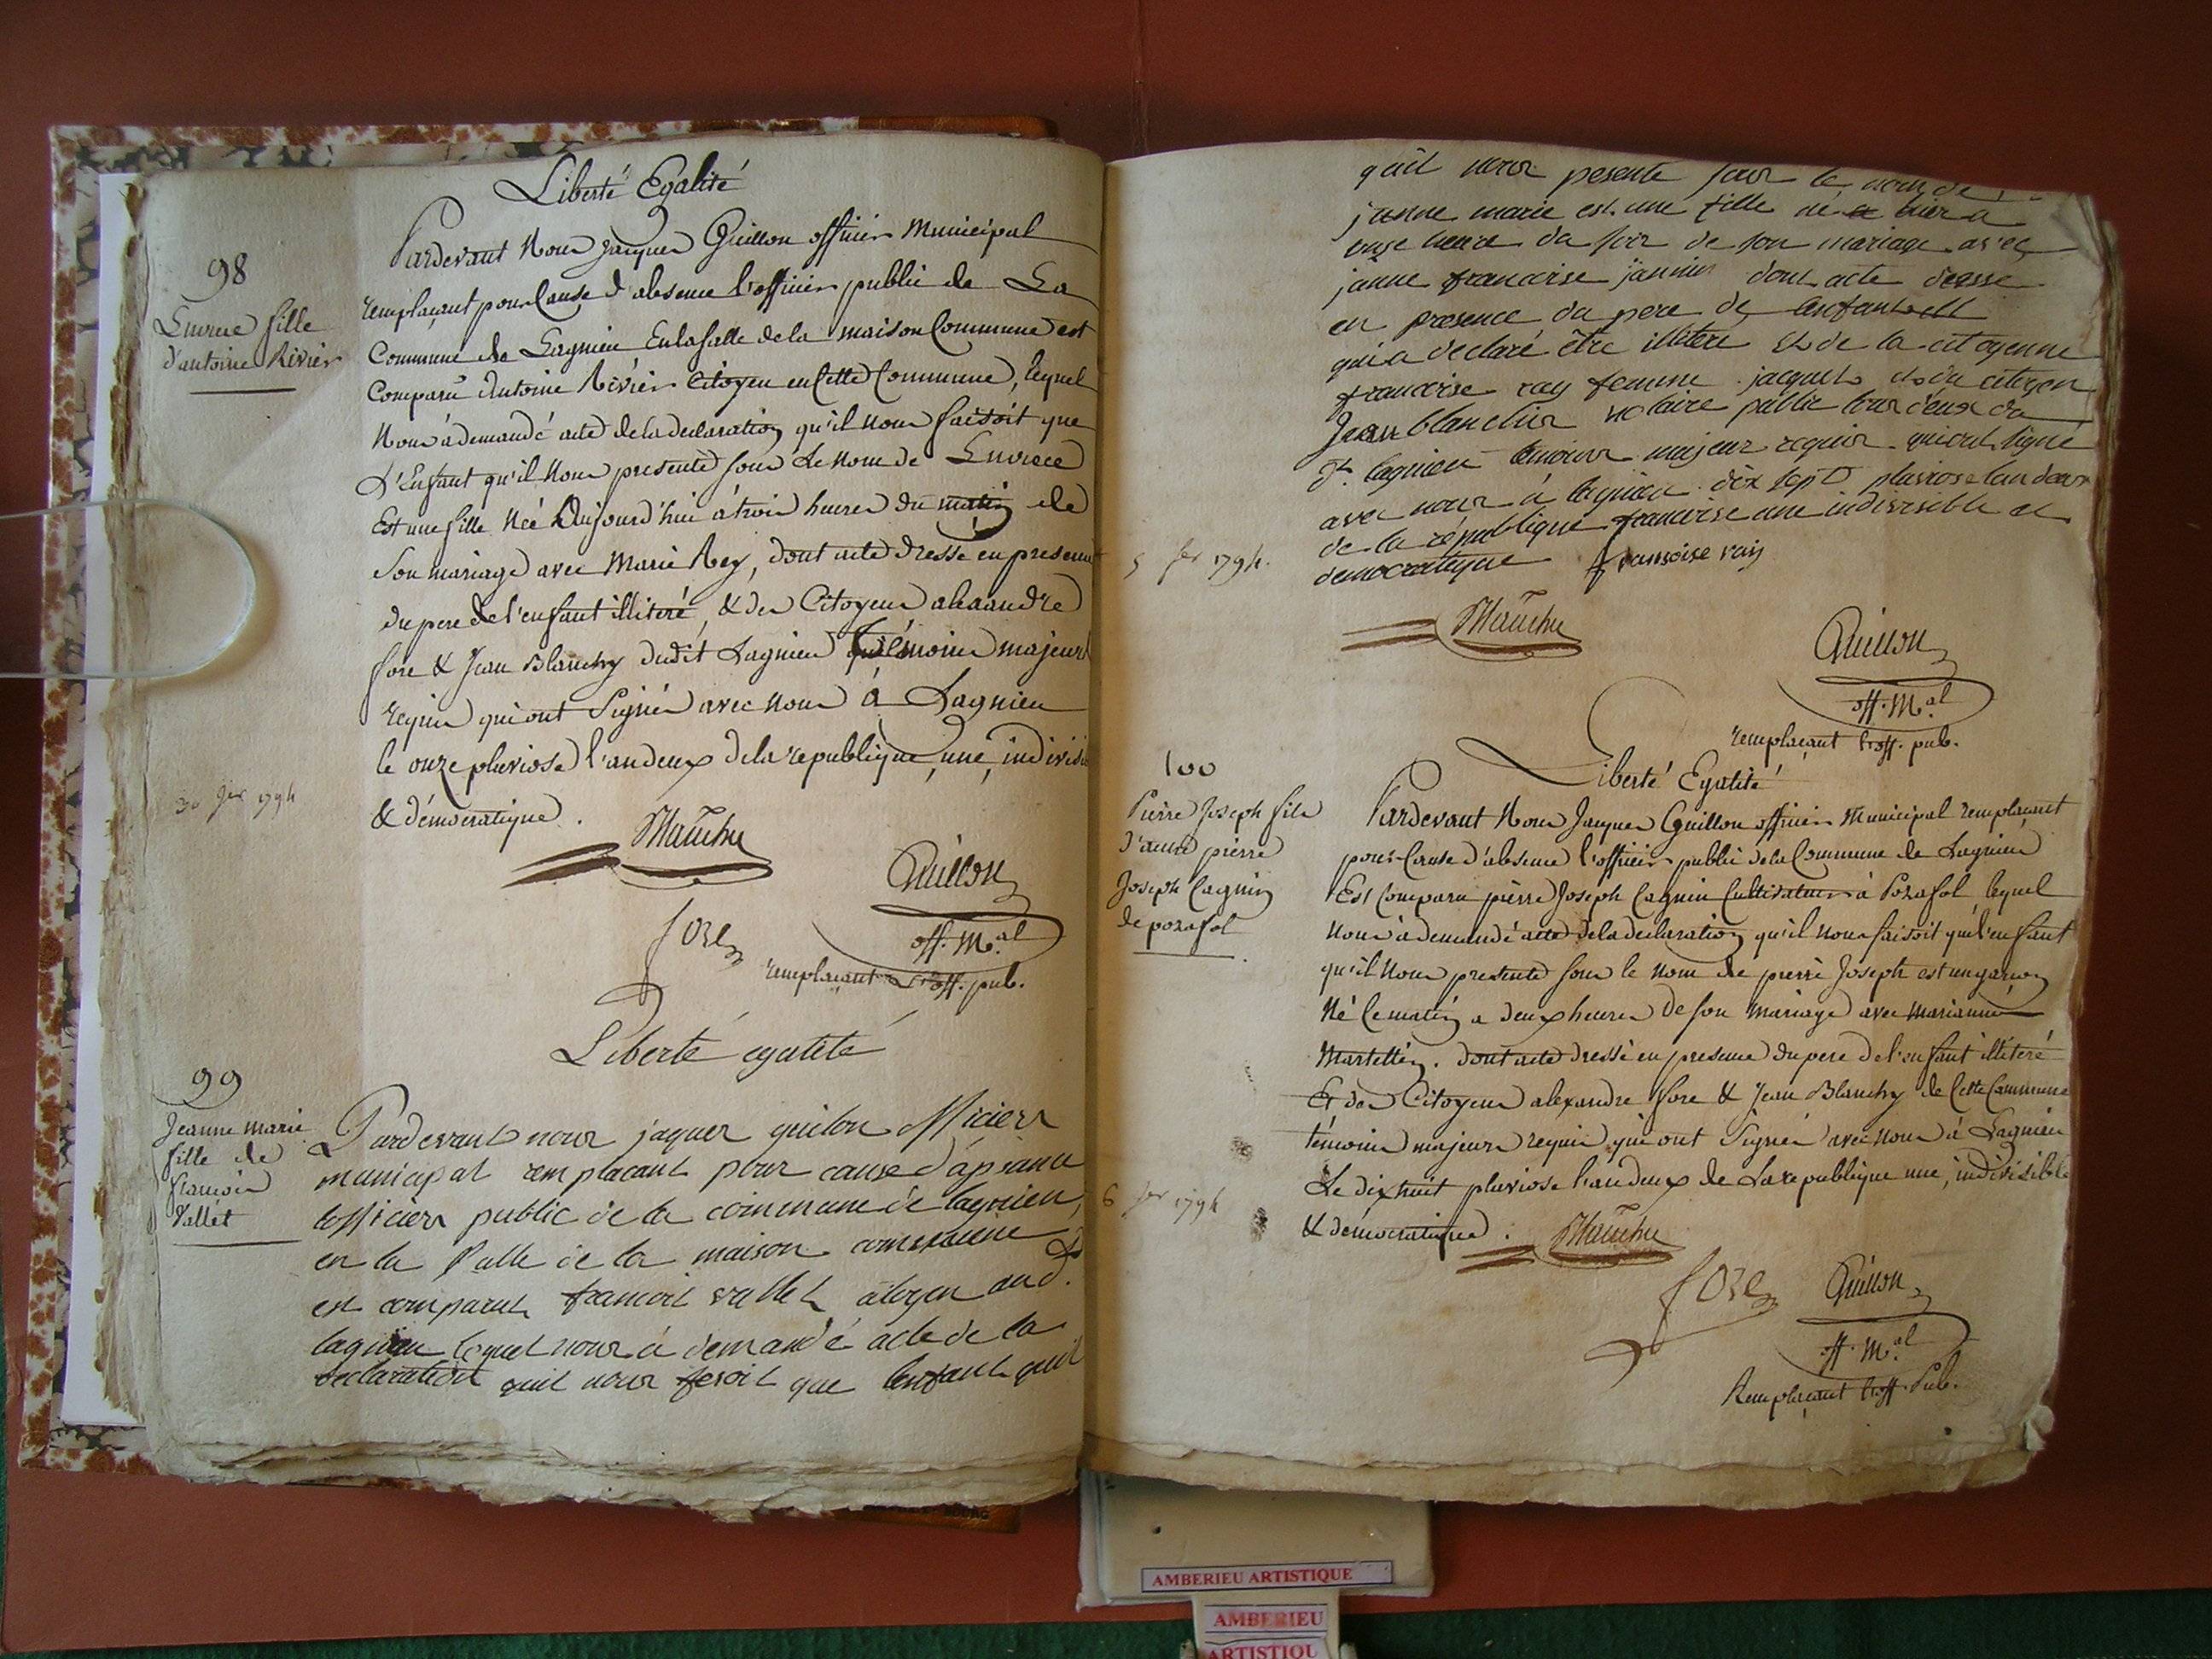 Liberté Egalité
98
Laurence fille
d'antoine Rivier
Pardevant Nous Jacques Guillon officier Municipal
remplaçant pour Cause d'absence l'officier public de La
Commune de Lagnieu En la salle de la maison Commune est
Comparu Antoine Rivier Citoyen en Cette Commune, lequel
Nous à demandé acte de la declaration qu'il nous faisoit que
L'Enfant qu'il Nous presente sous Le Nom de
Est une fille Née Aujourd'hui à trois heures du matin de
Son mariage avec Marie Rey, dont acte dressé en presence
du pere de l'enfant illiteré, & des Citoyens alexandre
fore & Jean Blanchy dudit Lagnieu témoins majeurs
requis qui ont Signés avec nous à Lagnieu
le onze pluviose l'an deux de la republique, une, indivisi
& démocratique.
30 Jer 1794
Guillon
fore
off. M.al
remplaçant l'off. pub.
Liberté egalité
99
Jeanne marie
fille de
francois
Vallet
Pardevant nous jaques guilon officiers
municipal remplacant pour cause d'apsance
lofficiers public de la commune de lagnieu,
en la salle de la maison commune
est comparut francoit vallet citoyen aud.t
lagnieu lequel nous à demandé acte de la
declaration quil nous fesoit que lenfant quil
quil nous pesente sous le nom de
janne marie est une fille né hier a
onze heure du soir de son mariage avec
janne francoise jannin dont acte dresse
en presence du pere de lenfant
qui a declaré être illitere et de la citoyenne
francoise ray femme jacquet et du citoyen
Jean blanchir notaire public tous deux du
d.t lagnieu temoins majeur requis qui ont signé
avec nous à lagnieu dix sept pluviose lan deux
de la république francoise une indivisible et
democratique fransoise ray
5 fer 1794.
Guillon
off. M.al
remplaçant l'off. pub.
Liberté Egalité
100
Pierre Joseph fils
d'autre pierre
Joseph Cagnin
de posafol
Pardevant Nous Jacques Guillon officier Municipal remplaçant
pour Cause d'absence l'officier public de la Commune de Lagnieu
Est Comparu pierre Joseph Cagnin Cultivateur à Posafol, lequel
Nous à demandé acte de la declaration qu'il Nous faisoit que l'enfant
qu'il Nous presente sous le Nom de pierre Joseph est un garçon
Né Ce matin a deux heures de son Mariage avec marianne
Martellin. dont acte dressé en presence du pere de l'enfant illiteré
Et des Citoyens alexandre fore & Jean Blanchy de Cette Commune
témoins majeurs requis qui ont Signés avec nous à Lagnieu
Le dix huit pluviose l'an deux de La republique une, indivisible
& démocratique.
6 fer 1794
fore
Guillon
off. M.al
Remplaçant l'off. Pub.
AMBERIEU ARTISTIQUE
AMBERIEU
ARTISTIQU